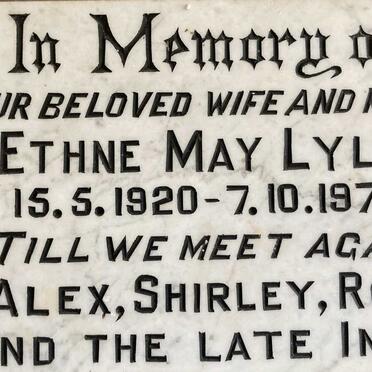 In Memory o
UR BELOVED WIFE AND
ETHNE MAY LYL
15.5.1920-7.10.197
TILL WE MEET AGA
ALEX, SHIRLEY, RO
ND THE LATE IN